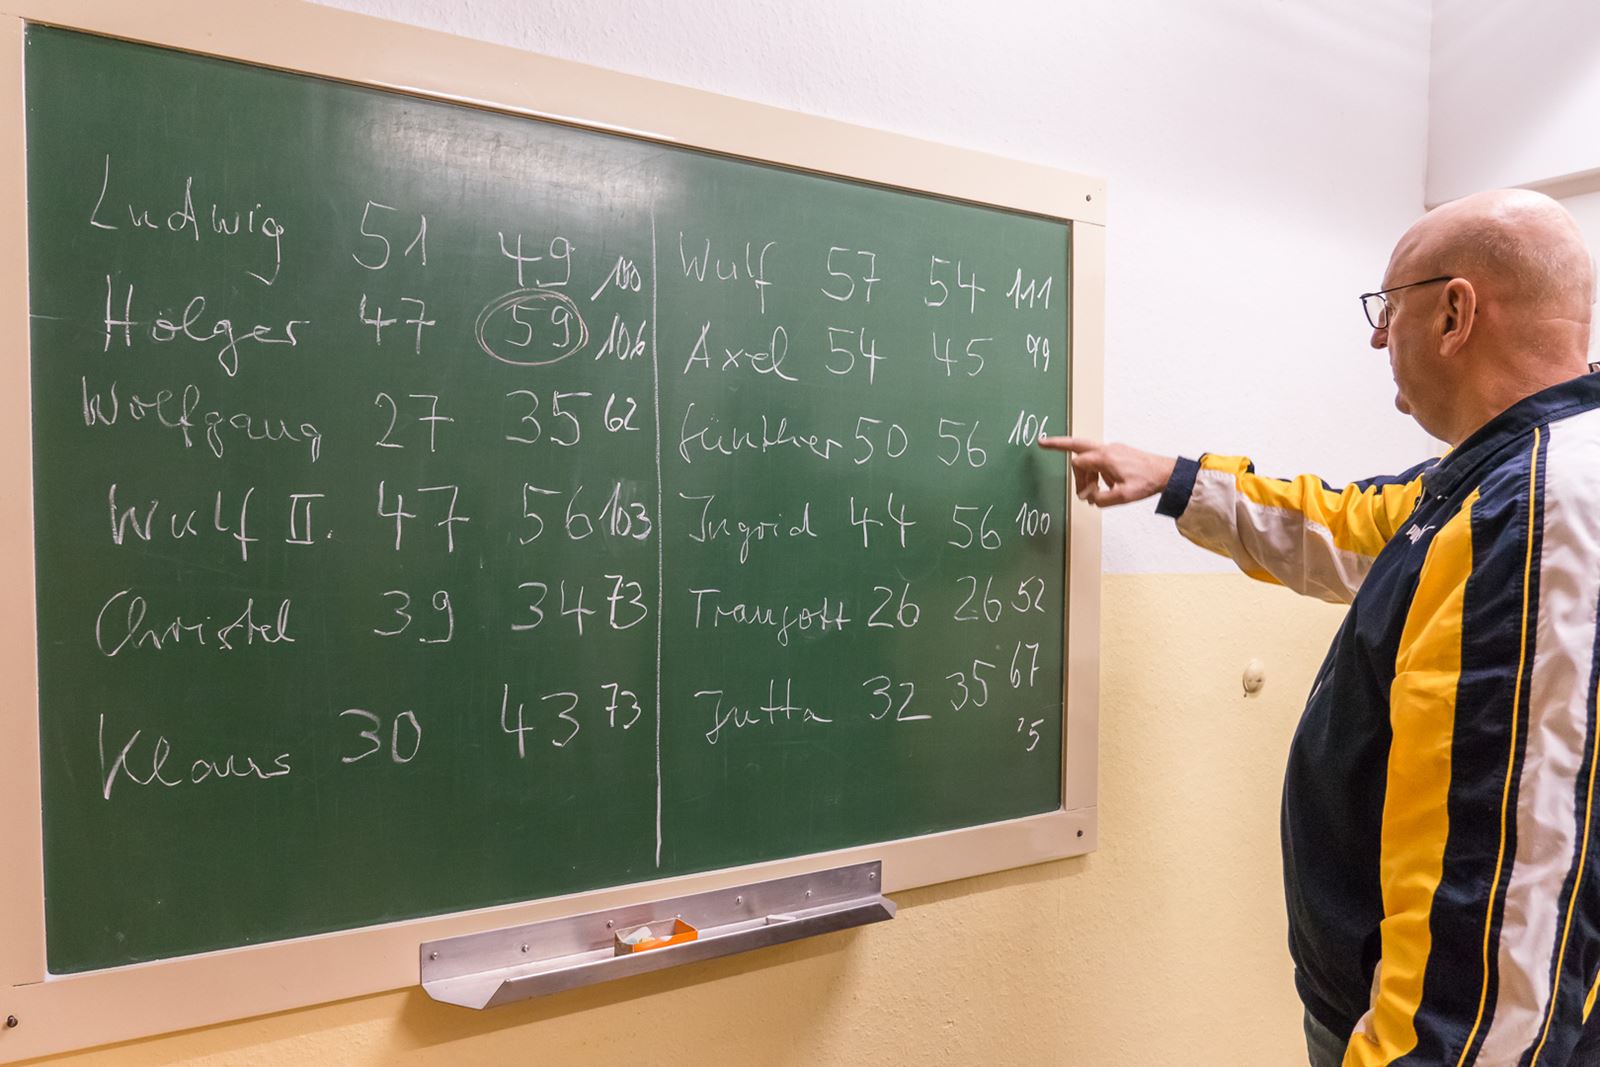 Ludwig 51 49 100
Holger 47 59 106
Wolfgang 27 35 62
Wulf II. 47 56 103
Christel 39 34 73
Klaus 30 43 73
Wulf 57 54 111
Axel 54 45 99
Günther 50 56 106
Ingrid 44 56 100
Traugott 26 26 52
Jutta 32 35 67
'5